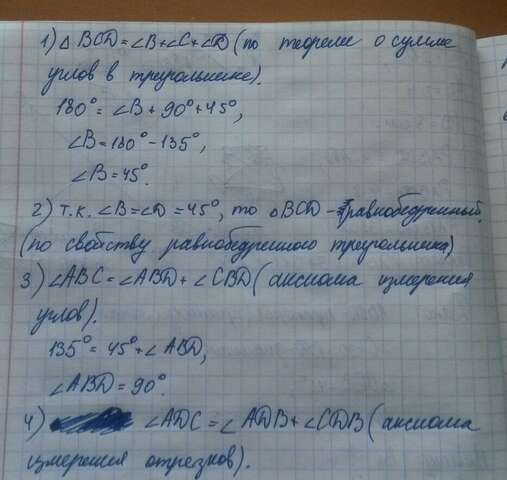 1) △ BCD = ∠B + ∠C + ∠D (по теореме о сумме
углов в треугольнике).
180° = ∠B + 90° + 45°,
∠B = 180° - 135°,
∠B = 45°.
2) т.к. ∠B = ∠D = 45°, то △BCD - равнобедренный.
(по свойству равнобедренного треугольника)
3) ∠ABC = ∠ABD + ∠CBD (аксиома измерения
углов).
135° = 45° + ∠ABD,
∠ABD = 90°.
4) ∠ADC = ∠ADB + ∠CDB (аксиома
измерения отрезков).